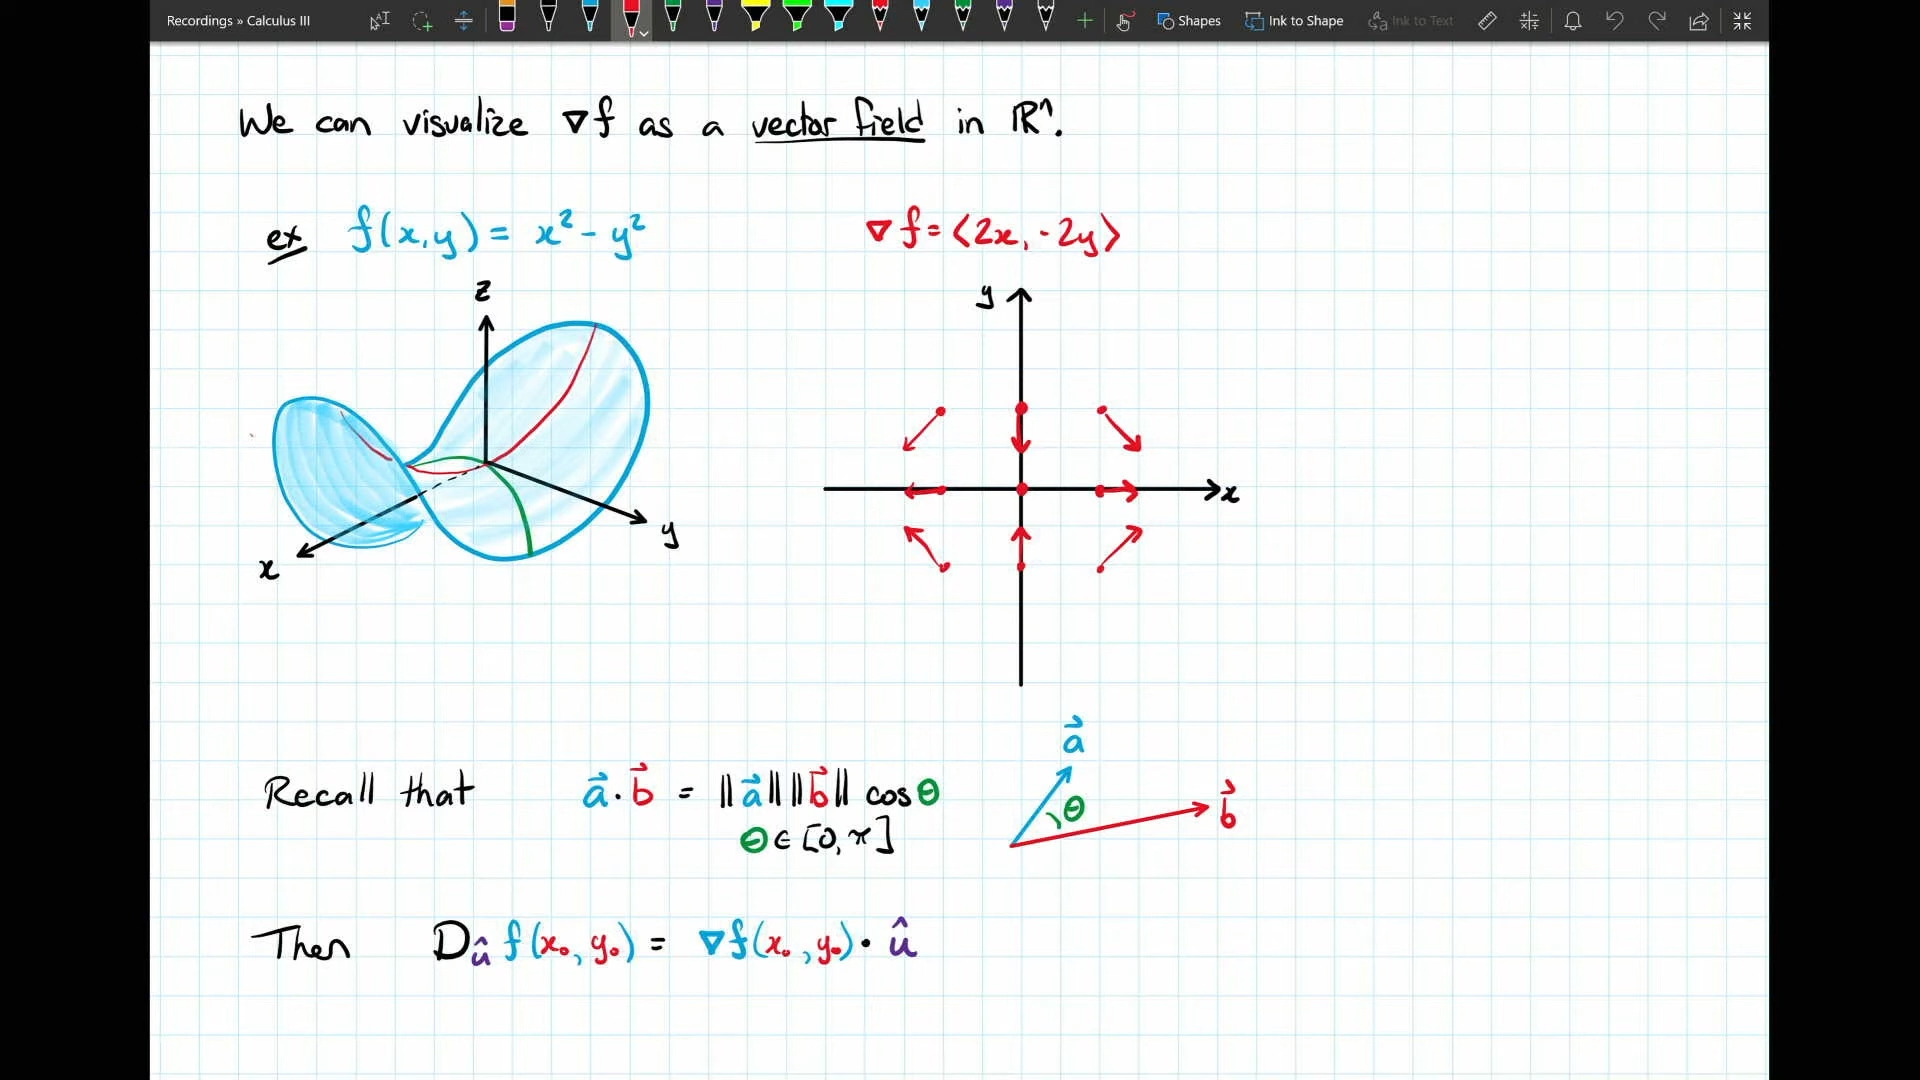 Recordings » Calculus III
Shapes
Ink to Shape
Ink to Text
We can visualize ∇f as a vector field in ℝⁿ.
ex f(x,y) = x² - y²
∇f = ⟨2x, -2y⟩
z
y
x
y
x
Recall that a⃗ · b⃗ = ‖a⃗‖ ‖b⃗‖ cos θ
θ ∈ [0, π]
a⃗
θ
b⃗
Then D_û f(x₀, y₀) = ∇f(x₀, y₀) · û